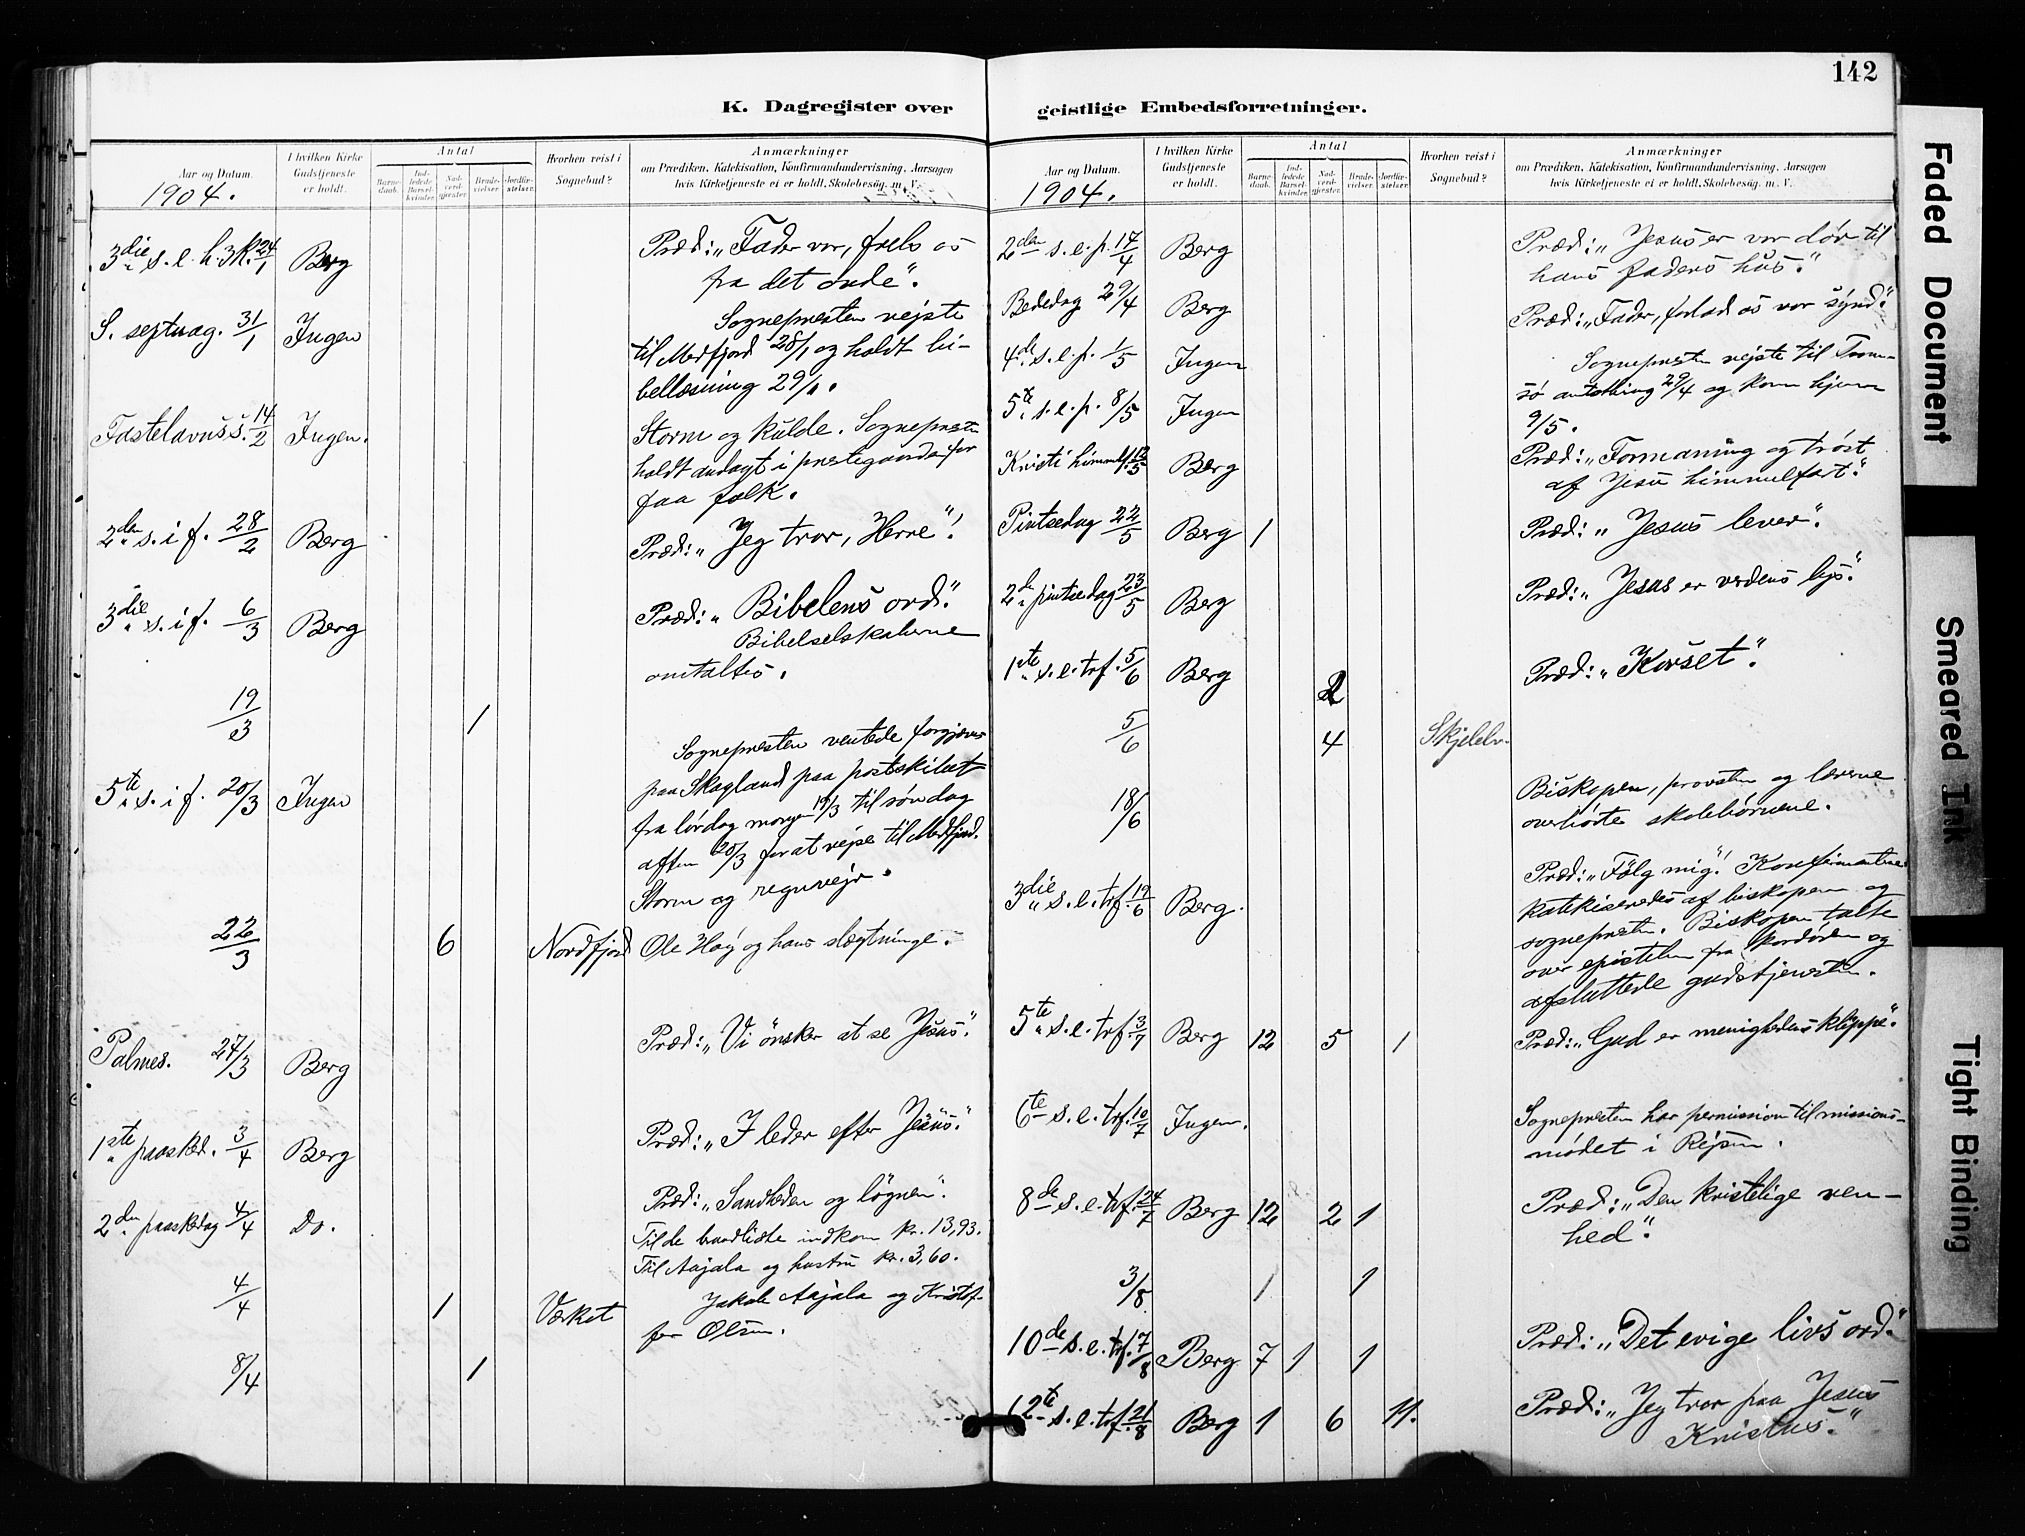 142
K. Dagregister over
geistlige Embedsforretninger.
Aar og Datum.
I hvilken Kirke Gudstjeneste er holdt.
Antal
Barnedaab.
Indledede Barselkvinder.
Nadverdgjester.
Brudevielser.
Jordfæstelser.
Hvorhen reist i Sognebud?
Anmærkninger
om Prædiken, Katekisation, Konfirmandundervisning. Aarsagen
hvis Kirketjeneste ei er holdt. Skolebesøg. m. V.
1904.
3die s. e. h. 3 k. 24/1 Berg Præd: "Fader vor, frels os
fra det onde".
S. septuag. 31/1 Ingen Sognepresten rejste
til Medfjord 28/1 og holdt bi-
bellæsning 29/1.
Fastelavnss. 14/2 Ingen. Storm og kulde. Sognepresten
holdt andagt i prestegaarden for
faa folk.
2den s. i f. 28/2 Berg Præd: "Jeg tror, Herre"!
3die s. i f. 6/3 Berg Præd: "Bibelens ord".
Bibelselskaberne
omtaltes.
19/3 1
5te s. i f. 20/3 Ingen Sognepresten ventede forgjæves
paa Skagland paa postskibet
fra lørdag morgen 19/3 til søndag
aften 20/3 for at rejse til Medfjord.
Storm og regnvejr.
22/3 6 Nordfjord Ole Høy og hans slægtninge.
Palmes. 27/3 Berg Præd: "Vi ønsker at se Jesus".
1ste paasked. 3/4 Berg Præd: "I leder efter Jesus".
2den paaskedag 4/4 Do. Præd: "Sandheden og løgnen".
Til de brandlidte indkom kr. 13,93.
Til Aajala og hustru kr. 3,60.
4/4 1 Værket Jakob Aajala og Kristof-
fer Olsen.
8/4 1
Aar og Datum.
I hvilken Kirke Gudstjeneste er holdt.
Antal
Barnedaab.
Indledede Barselkvinder.
Nadverdgjester.
Brudevielser.
Jordfæstelser.
Hvorhen reist i Sognebud?
Anmærkninger
om Prædiken, Katekisation, Konfirmandundervisning. Aarsagen
hvis Kirketjeneste ei er holdt. Skolebesøg. m. V.
1904.
2den s. e. p. 17/4 Berg Præd: "Jesus er vor dør til
hans faders hus".
Bededag 29/4 Berg Præd: "Fader, forlad os vor synd".
4de s. e. p. 1/5 Ingen Sognepresten rejste til Trom-
5te s. e. p. 8/5 Ingen sø amtsting 29/4 og kom hjem
9/5.
Kristi himmelf. 12/5 Berg Præd: "Formaning og trøst
af Jesu himmelfart".
Pintsedag 22/5 Berg 1 Præd: "Jesus lever".
2de pintsedag 23/5 Berg Præd: "Jesus er verdens lys".
1ste s. e. tref. 5/6 Berg 2 Præd: "Korset".
5/6 4 Skjelelv.
18/6 Biskopen, provsten og lærerne
overhørte skolebørnene.
3die s. e. tref. 19/6 Berg. Præd: "Følg mig"! Konfirmanterne
katekiseredes af biskopen og
sognepresten. Biskopen talte
over epistelen fra kordøren og
afsluttede gudstjenesten.
5te s. e. tref. 3/7 Berg 12 5 1 Præd: "Gud er menighedens klippe".
6te s. e. tref. 10/7 Ingen. Sognepresten har permission til missions-
mødet i Rejsen.
8de s. e. tref. 24/7 Berg 12 2 1 Præd: "Den kristelige ren-
hed".
3/8 1 1
10de s. e. tref. 7/8 Berg 7 1 1 Præd: "Det evige livs ord".
12te s. e. tref. 21/8 Berg 1 6 11. Præd: "Jeg tror paa Jesus
Kristus."
Faded Document
Smeared Ink
Tight Binding